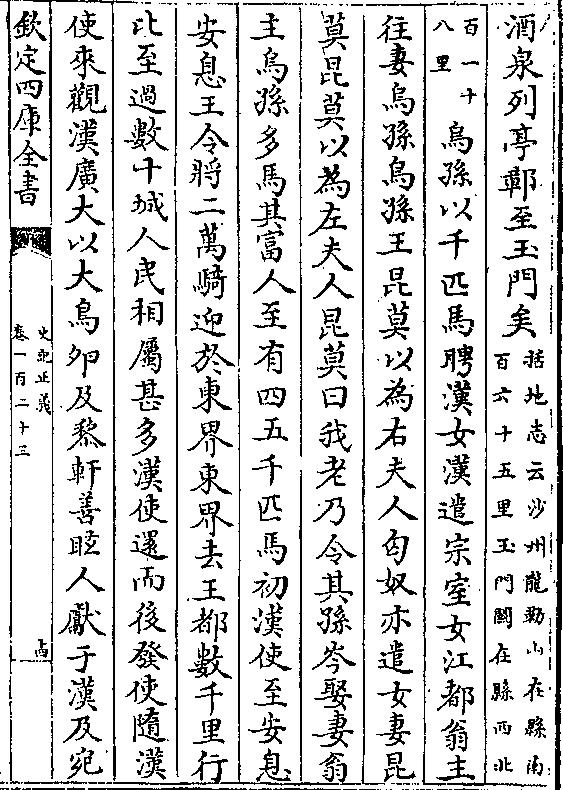 酒泉列亭鄣至玉門矣括地志云沙州龍勒山在縣南百六十五里玉門關在縣西北
百一十八里烏孫以千匹馬聘漢女漢遣宗室女江都翁主
往妻烏孫烏孫王昆莫以為右夫人匈奴亦遣女妻昆
莫昆莫以為左夫人昆莫曰我老乃令其孫岑娶妻翁
主烏孫多馬其富人至有四五千匹馬初漢使至安息
安息王令將二萬騎迎於東界東界去王都數千里行
比至過數十城人民相屬甚多漢使還而後發使隨漢
使來觀漢廣大以大鳥卵及黎軒善眩人獻于漢及宛
欽定四庫全書
史記正義
卷一百二十三